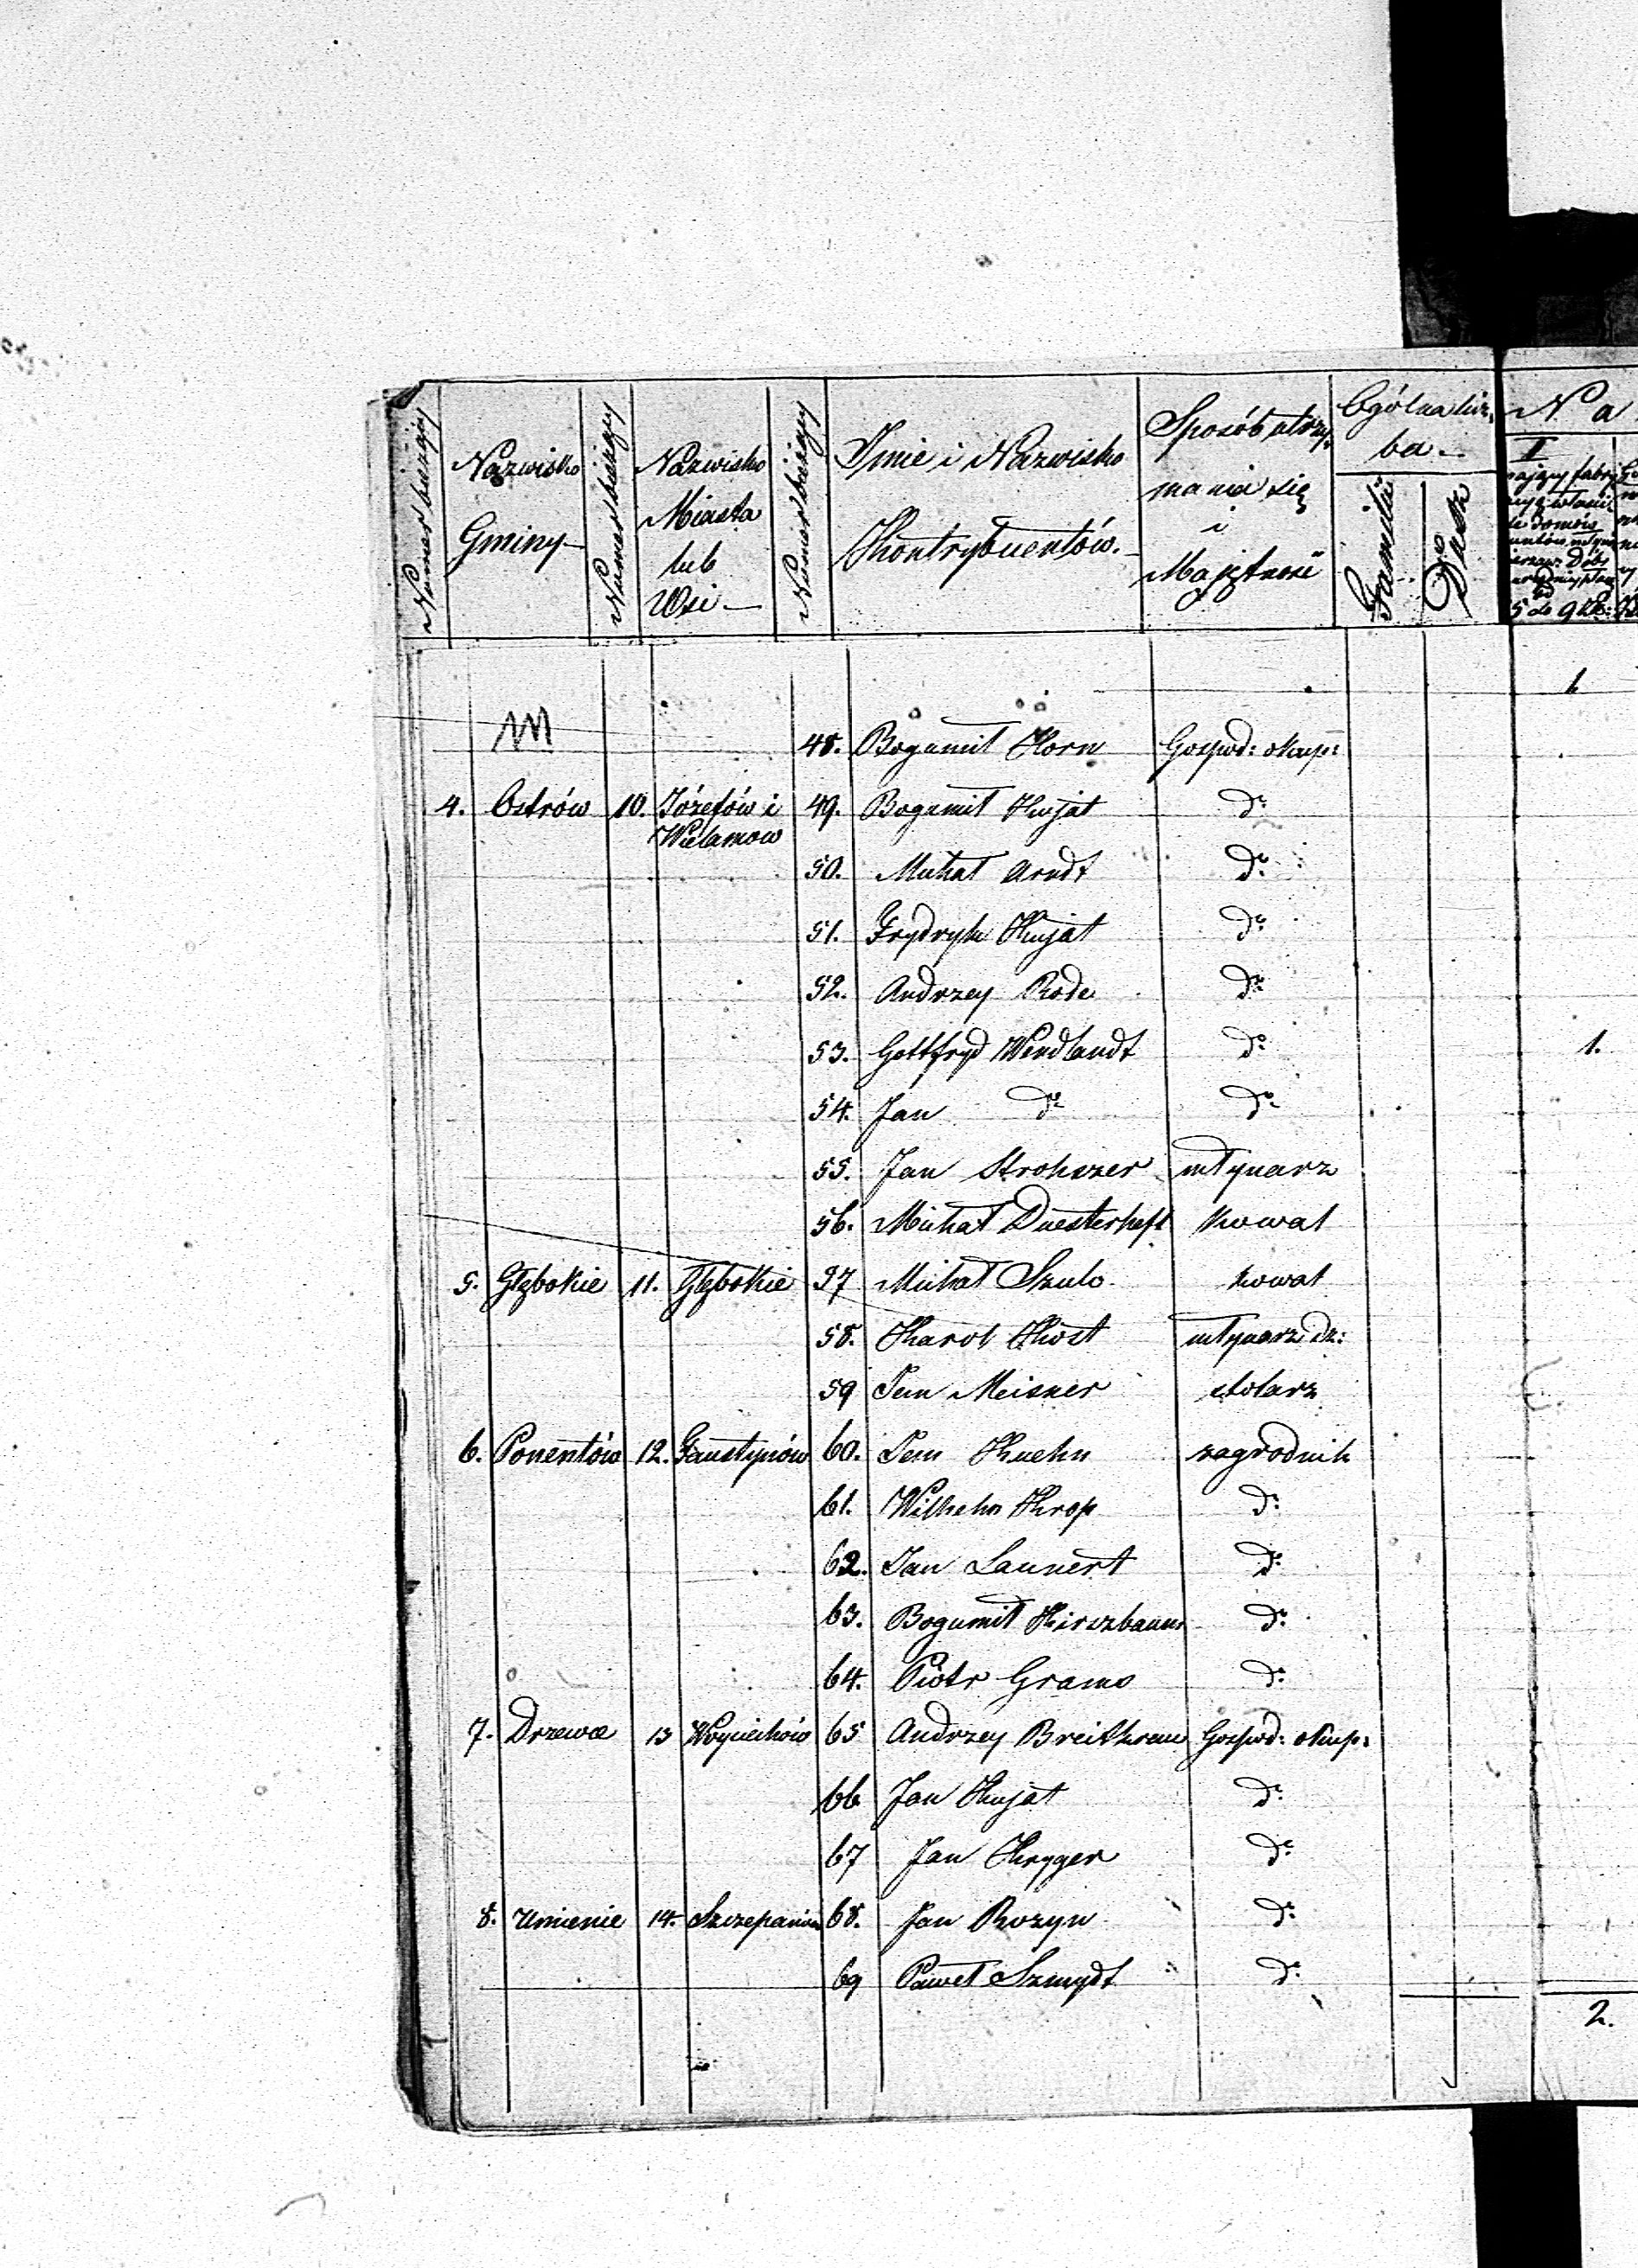 Numer bieżący
Nazwisko Gminy
Numer bieżący
Nazwisko Miasta lub Wsi
Numer bieżący
Imie i Nazwisko Kontrybuentów.
Sposób utrzymania się i Majętność
Ogólna liczba
Familii
Dusz
N a
I
5 do 9 kl:
1
48. Bogumił Horn Gospod: okup:
4. Ostrów 10. Józefów i 49. Bogumił Kujat do
Wielamow
50. Michał Arndt do
51. Frydryk Kujat do
52. Andrzey Rode do
53. Gottfryd Wendlandt do 1.
54. Jan do do
55. Jan Strohszer młynarz
56. Michał Duesterheft Kowal
5. Głębokie 11. Głębokie 57 Michał Szulc kowal
58. Karol Kost młynarz dz:
59 Sam Meisner stolarz
6. Ponentów 12. Faustynów 60. Sam Kuehn zagrodnik
61. Wilhelm Krop do
62. Jan Launert do
63. Bogumił Kirszbaum do
64. Piotr Grams do
7. Drzewce 13 Woyciechów 65 Andrzey Breitkreu Gospod: okup:
66 Jan Kujat do
67 Jan Krygger do
8. Umienie 14. Szczepanów 68. Jan Rozyn do
69 Paweł Szmydt do
2.